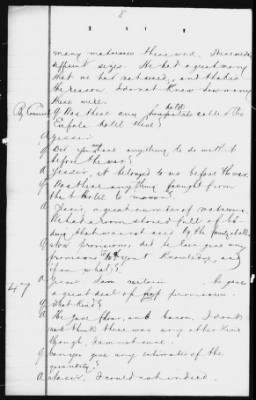 8
many matresses there were. There were
different sizes. He had a great many
that we had not used, and that is
the reason I do not know how many
there were.
By Commr Q Was there any hospital hotel called the
Eufala hotel there?
A Yes sir.
Q Did you have anything to do with it
before the war?
A Yes sir, it belonged to me before the war.
Q Was there any thing bought from
that hotel to
A Yes sir, a great number of matresses.
We had a room stored full of
that was not used by the family, at all.
Q Now provisions, did he give any
provisions to your knowledge, and
if so what?
A Yes sir I am certain he gave
47 a great deal of provisions.
Q What kind?
A He gave flour, and bacon. I do
not think there was any other kind
though, I am not sure.
Q Can you give any estimates of the
quantity?
A No sir, I could not indeed.